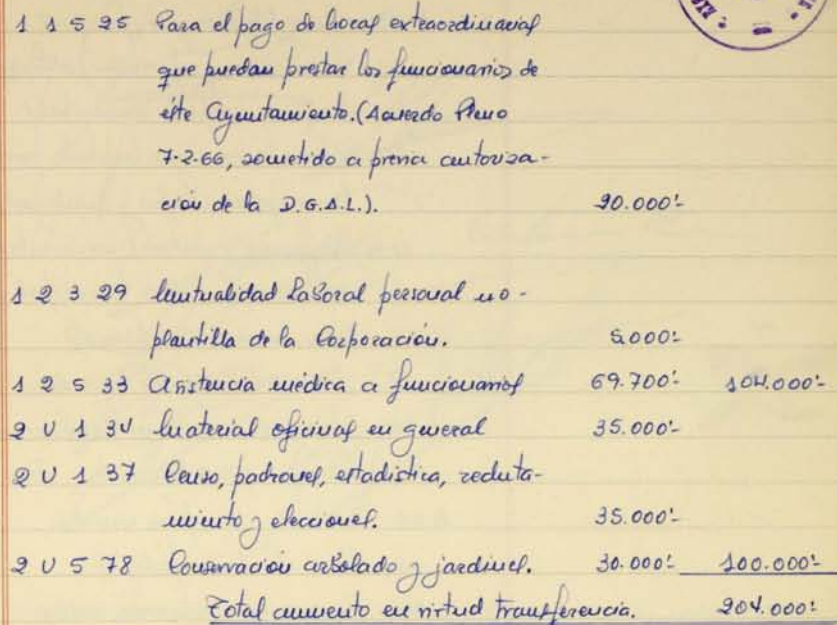 1 1 5 25 Para el pago de horas extraordinarias
que puedan prestar los funcionarios de
éste Ayuntamiento. (Acuerdo Pleno
7-2-66, sometido a previa autoriza-
ción de la D.G.A.L.). 20.000'-
1 2 3 29 Mutualidad Laboral personal no-
plantilla de la Corporación. 5.000'-
1 2 5 33 Asistencia médica a funcionarios 69.700'- 104.000'-
2 U 1 34 Material oficinas en general 35.000'-
2 U 1 37 Censo, padrones, estadistica, recluta-
miento y elecciones. 35.000'-
2 U 5 78 Conservación arbolado y jardines. 30.000'- 100.000'-
Total aumento en virtud transferencia. 204.000'-